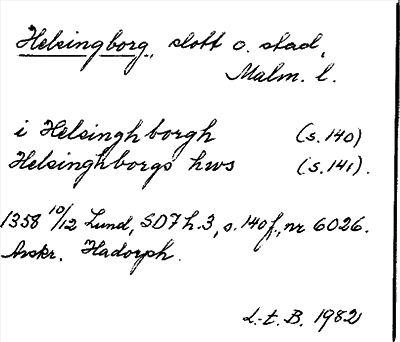 Helsingborg, slott o. stad,
Malm. l.
i Helsinghborgh (s. 140)
Helsinghborgs hws (s. 141).
1358 10/12 Lund, SD7 h. 3, s. 140 f., nr 6026.
Avskr. Hadorph.
L.-t. B. 1982